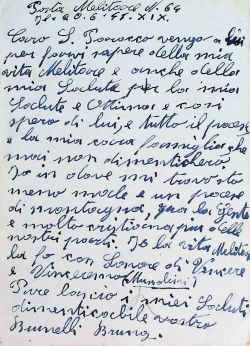 Posta Militare N. 64
Caro S. Parroco vengo a lui
per farvi sapere della mia
vita Militare e anche della
mia Salute per la mia
Salute e Ottima e cosi
spero di lui, e tutto il paese
e la mia cara famiglia che
mai non dimenticherò
Io in dove mi trovo sto
meno male e un paese
di montagna, qua la Gente
e molto cristiana più delle
nostri parti. Io la vita Militare
la fo con Lonore di Vincere
e Vinceremo (Mussolini)
Pure lascio i miei Saluti
dimenticabile vostro
Brunelli Bruno.